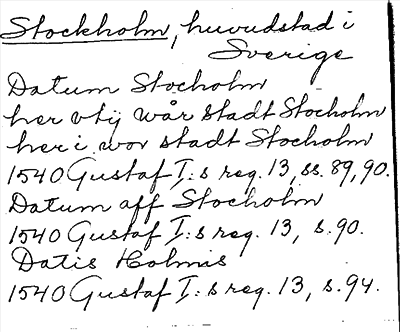 Stockholm, huvudstad i
Sverige
Datum Stocholm
her vtij wår stadt Stocholm
her i wor stadt Stocholm
1540 Gustaf I:s reg. 13, ss. 89, 90.
Datum aff Stocholm
1540 Gustaf I:s reg. 13, s. 90.
Datis Holmis
1540 Gustaf I:s reg. 13, s. 94.